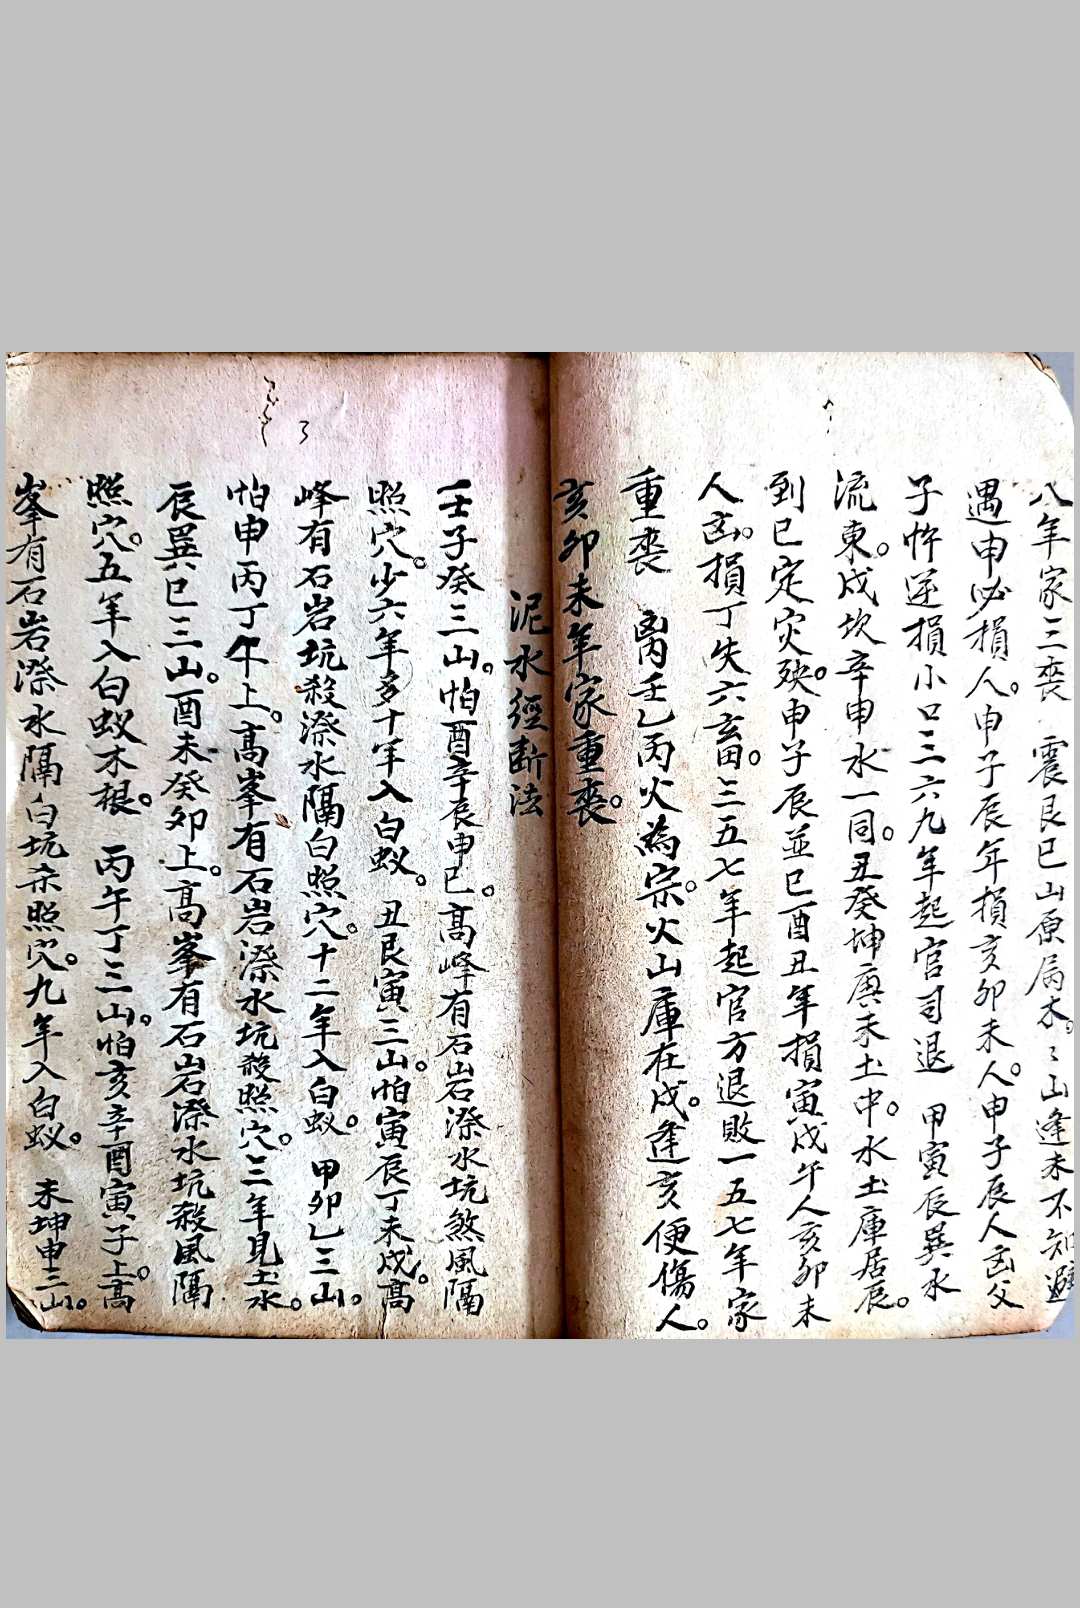 八年家三喪 震艮巳山原屬木。〻山逢未不知避
遇申必損人。申子辰年損亥卯未人。申子辰人凶父
子忤逆損小口三六九年起官司退 甲寅辰巽水
流東。戌坎辛申水一同。丑癸坤庚未土中。水土庫居辰。
到巳定灾殃。申子辰並巳酉丑年損寅戌午人亥卯未
人凶。損丁失六畜。三五七年起官方退敗一五七年家
重喪 离壬乙丙火為宗。火山庫在戌。逢亥便傷人。
亥卯未年家重喪。
泥水經斷法
壬子癸三山。怕酉辛辰申巳。高峰有石岩漈水坑煞風隔
照穴。少六年多十年入白蚁。 丑艮寅三山。怕寅辰丁未戌。高
峰有石岩坑殺漈水隔白照穴。十二年入白蚁。 甲卯乙三山。
怕申丙丁午上。高峯有石岩漈水坑殺照穴。三年見土水。
辰巽巳三山。酉未癸卯上。高峯有石岩漈水坑殺風隔
照穴。五年入白蚁木根。 丙午丁三山。怕亥辛酉寅子上。高
峯有石岩漈水隔白坑杀照穴。九年入白蚁。 未坤申三山。